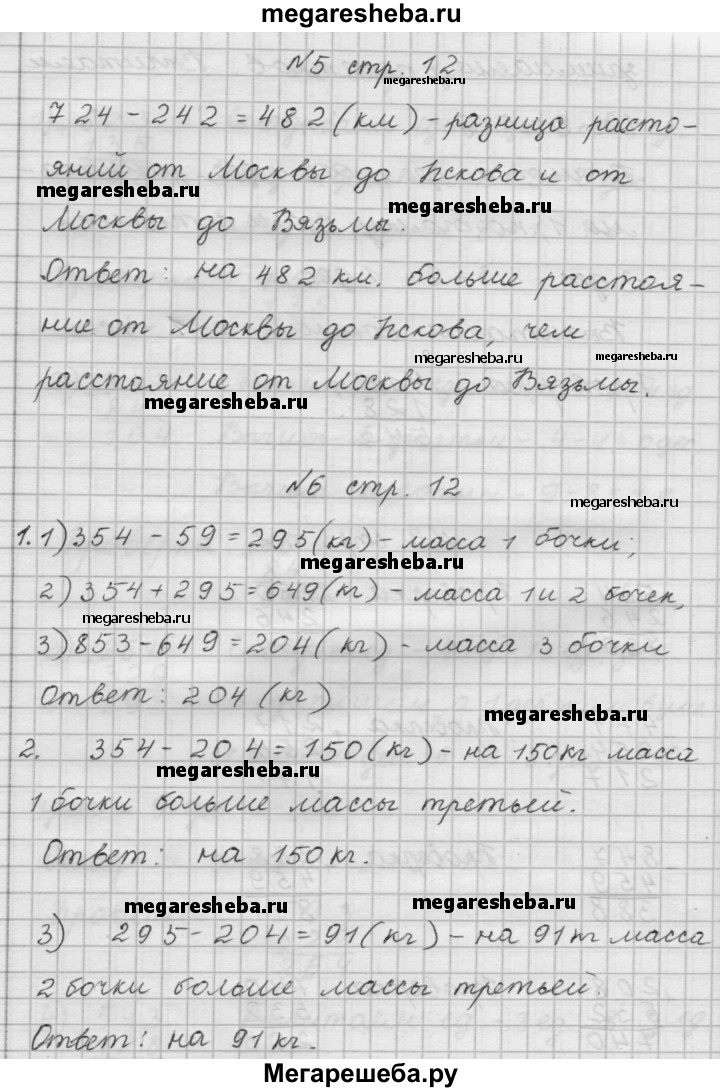 megaresheba.ru
№5 стр. 12
megaresheba.ru
724 - 242 = 482 (км) - разница рассто-
яний от Москвы до Пскова и от
megaresheba.ru
megaresheba.ru
Москвы до Вязьмы.
Ответ: на 482 км. больше расстоя-
ние от Москвы до Пскова, чем
megaresheba.ru
megaresheba.ru
расстояние от Москвы до Вязьмы.
megaresheba.ru
№6 стр. 12
megaresheba.ru
1. 1) 354 - 59 = 295 (кг) - масса 1 бочки;
megaresheba.ru
2) 354 + 295 = 649 (кг) - масса 1 и 2 бочек,
megaresheba.ru
3) 853 - 649 = 204 ( кг) - масса 3 бочки
Ответ: 204 (кг)
megaresheba.ru
2. 354 - 204 = 150 (кг) - на 150 кг масса
megaresheba.ru
1 бочки больше массы третьей.
Ответ: на 150 кг.
megaresheba.ru
megaresheba.ru
3) 295 - 204 = 91 (кг) - на 91 кг масса
2 бочки больше массы третьей.
Ответ: на 91 кг.
Мегарешеба.ру